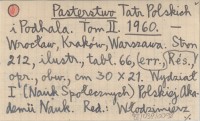 Pasterstwo Tatr Polskich
i Podhala. Tom II. 1960. —
Wrocław, Kraków, Warszawa. Stron
212, ilustr., tabl. 66, (err., Rés.,
opr., obw., cm 30 x 21. Wydział
I (Nauk Społecznych) Polskiej Aka-
demii Nauk. Red.: Włodzimierz